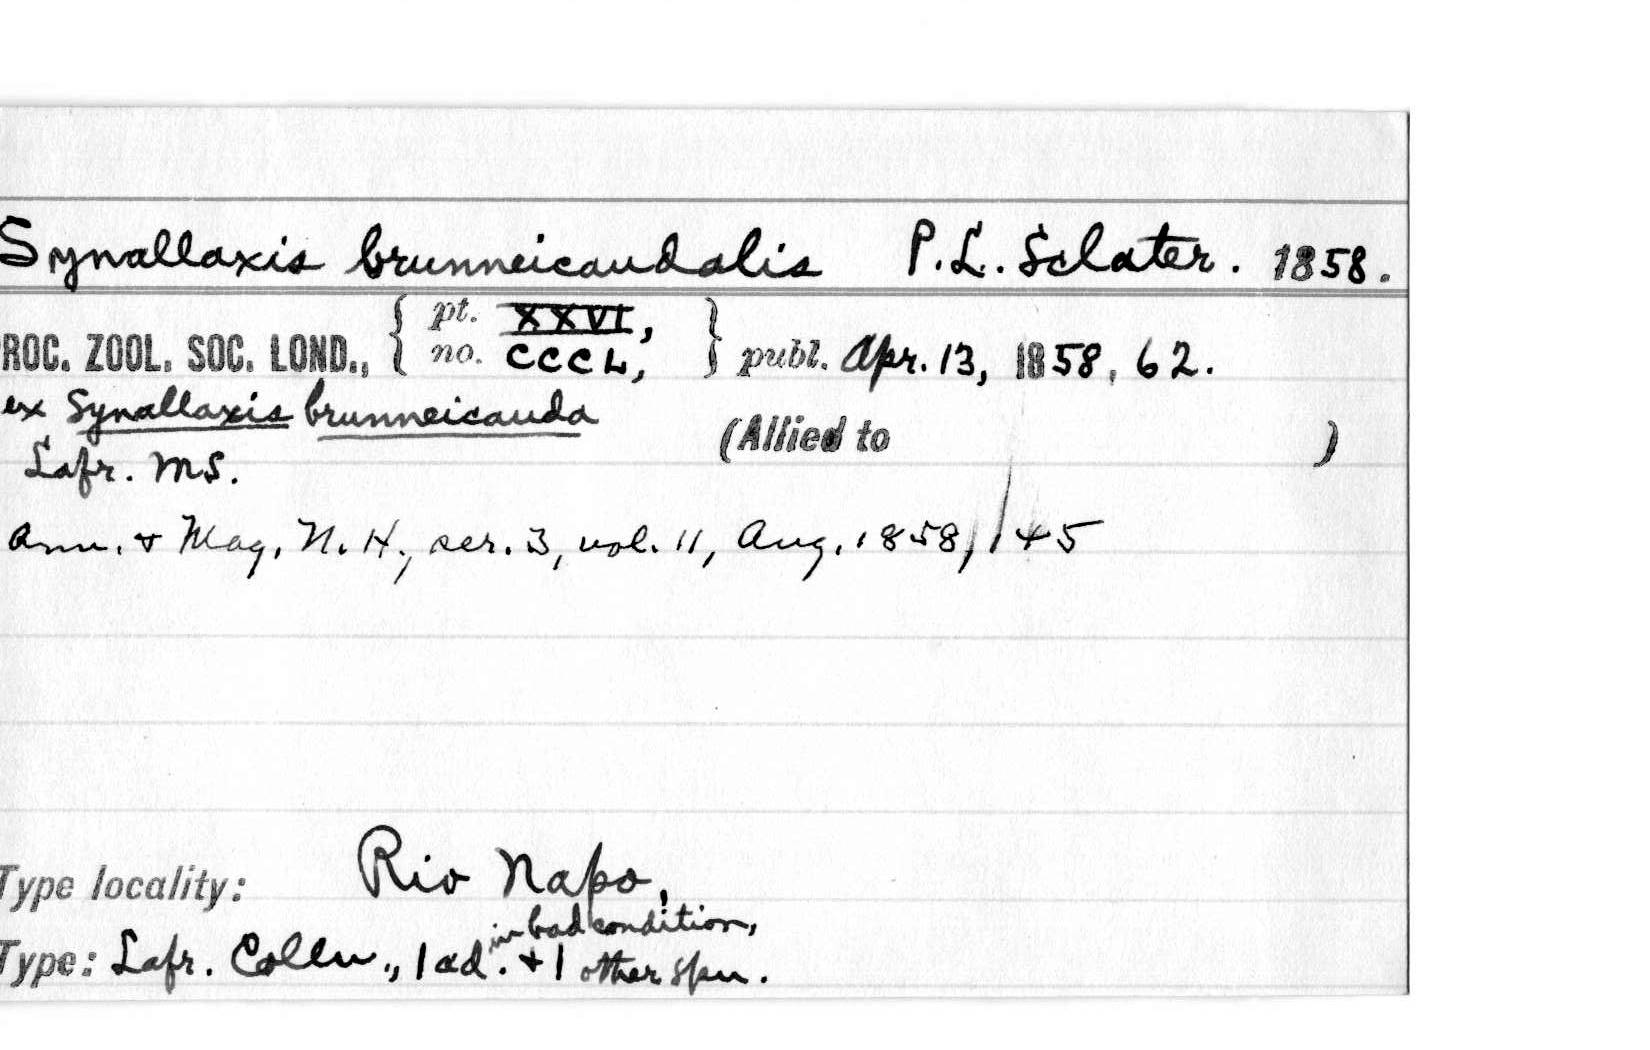 Synallaxis brunneicaudalis P.L. Sclater. 1858.
ROC. ZOOL. SOC. LOND., { pt. XXVI, no. CCCL, } publ. Apr. 13, 1858, 62.
ex Synallaxis brunneicauda
(Allied to )
Lafr. MS.
Ann. & Mag. N. H., ser. 3, vol. 11, Aug. 1858, 145
Type locality: Rio Napo,
in bad condition,
Type: Lafr. Colln., 1 ad. + 1 other spn.